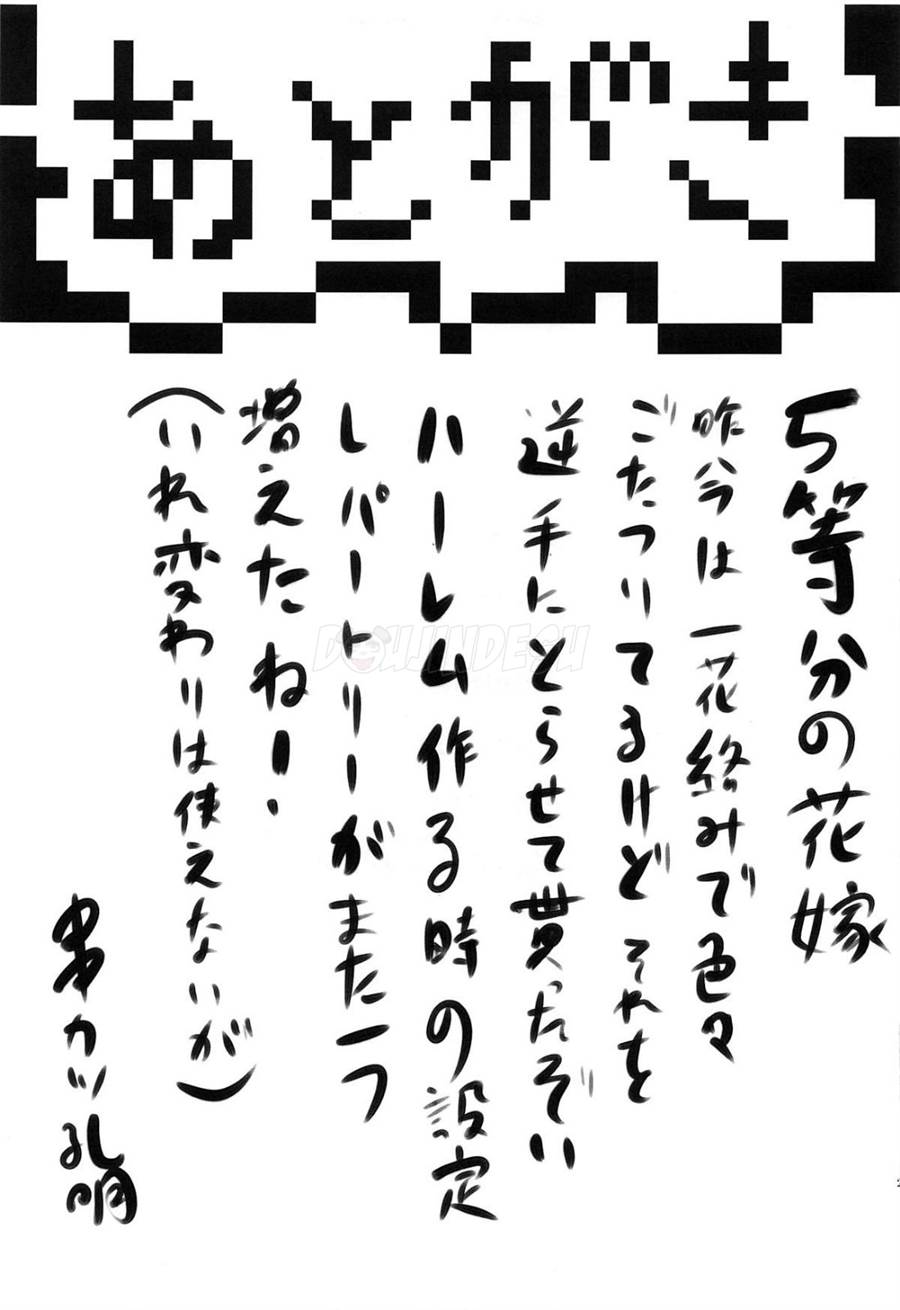 あとがき
5等分の花嫁
昨今は一花絡みで色々
ごたついてるけどそれを
逆手にとらせて貰ったぞい
ハーレム作る時の設定
レパートリーがまた一つ
増えたね!
(いれ変わりは使えないが)
串カツ孔明
DOUJINDESU